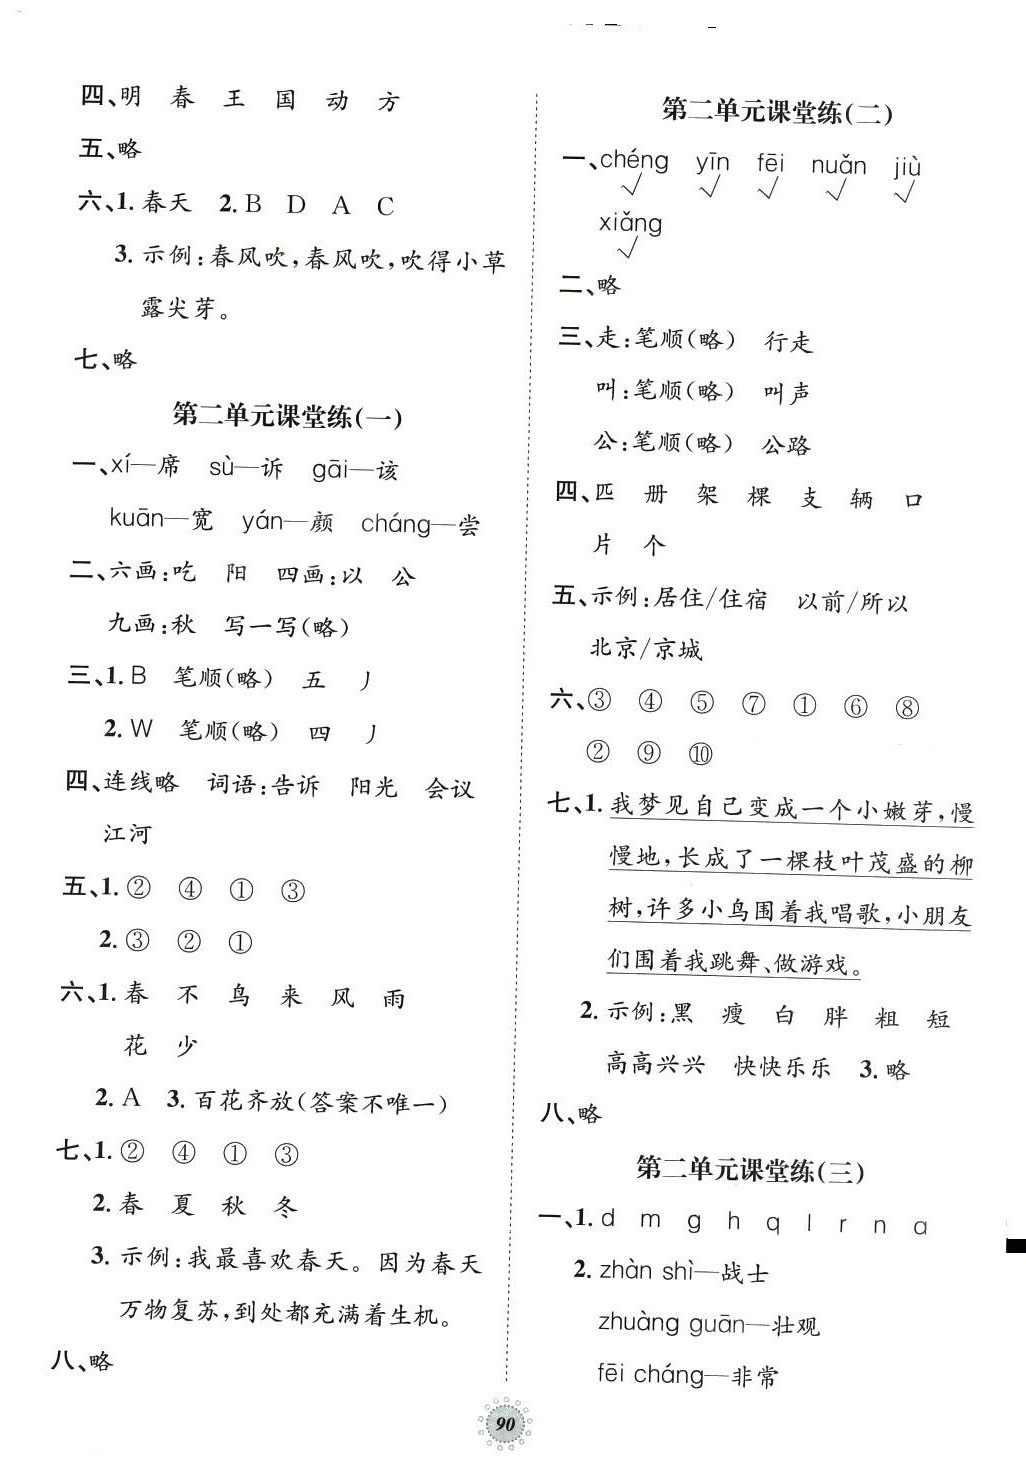 四、明 春 王 国 动 方
五、略
六、1. 春天 2. B D A C
3. 示例:春风吹,春风吹,吹得小草
露尖芽。
七、略
第二单元课堂练(一)
一、xí—席 sù—诉 gāi—该
kuān—宽 yán—颜 cháng—尝
二、六画:吃 阳 四画:以 公
九画:秋 写一写(略)
三、1. B 笔顺(略) 五 丿
2. W 笔顺(略) 四 丿
四、连线略 词语:告诉 阳光 会议
江河
五、1. ② ④ ① ③
2. ③ ② ①
六、1. 春 不 鸟 来 风 雨
花 少
2. A 3. 百花齐放(答案不唯一)
七、1. ② ④ ① ③
2. 春 夏 秋 冬
3. 示例:我最喜欢春天。因为春天
万物复苏,到处都充满着生机。
八、略
第二单元课堂练(二)
一、chéng yīn fēi nuǎn jiù
√ √ √ √ √
xiǎng
√
二、略
三、走:笔顺(略) 行走
叫:笔顺(略) 叫声
公:笔顺(略) 公路
四、匹 册 架 棵 支 辆 口
片 个
五、示例:居住/住宿 以前/所以
北京/京城
六、③ ④ ⑤ ⑦ ① ⑥ ⑧
② ⑨ ⑩
七、1. 我梦见自己变成一个小嫩芽,慢
慢地,长成了一棵枝叶茂盛的柳
树,许多小鸟围着我唱歌,小朋友
们围着我跳舞、做游戏。
2. 示例:黑 瘦 白 胖 粗 短
高高兴兴 快快乐乐 3. 略
八、略
第二单元课堂练(三)
一、1. d m g h q l r n a
2. zhàn shì—战士
zhuàng guān—壮观
fēi cháng—非常
90